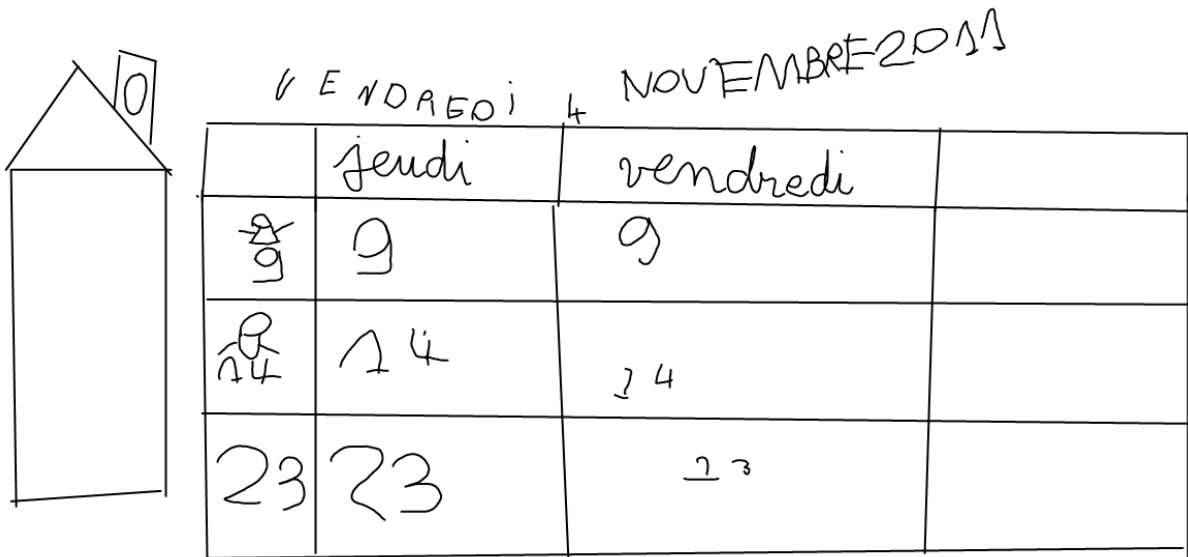 0
VENDREDi 4 NOVEMBRE 2011
jeudi vendredi
9 9 9
14 14 14
23 23 23